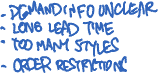 - DEMAND INFO UNCLEAR
- LONG LEAD TIME
- TOO MANY STYLES
- ORDER RESTRICTIONS